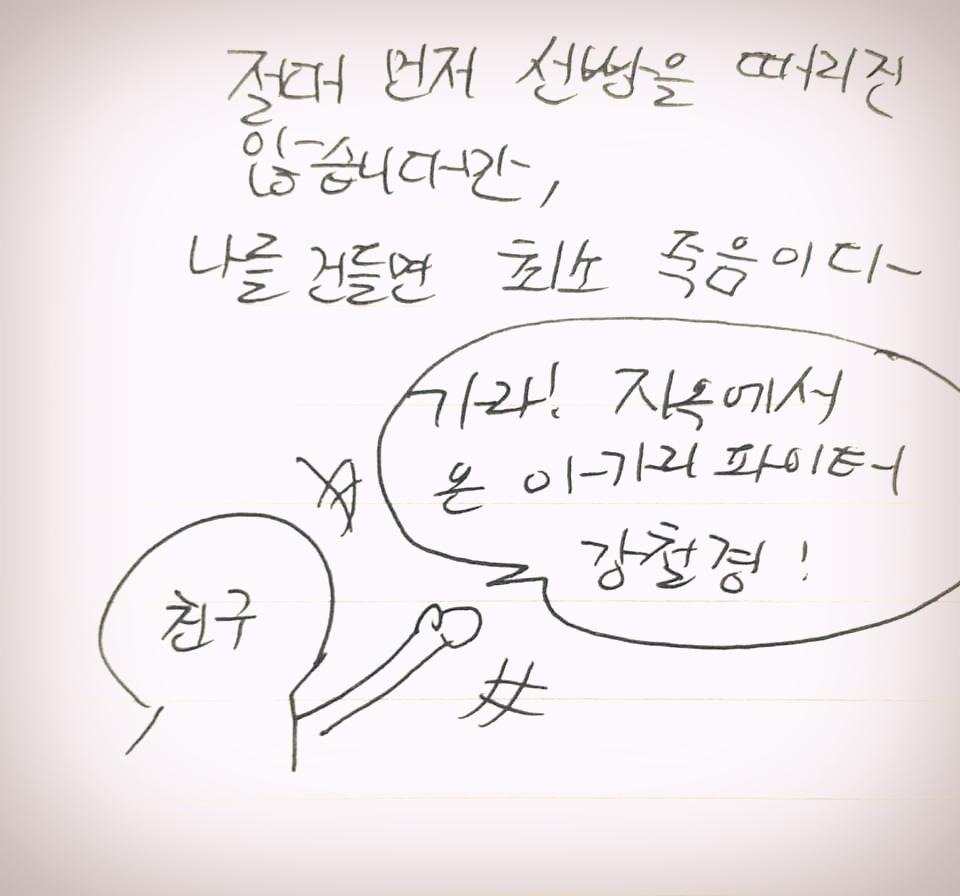 절대 먼저 선빵을 때리진
않습니다만,
나를 건들면 최소 죽음이다
가라! 지옥에서
온 아가리 파이터
강철경!
친구